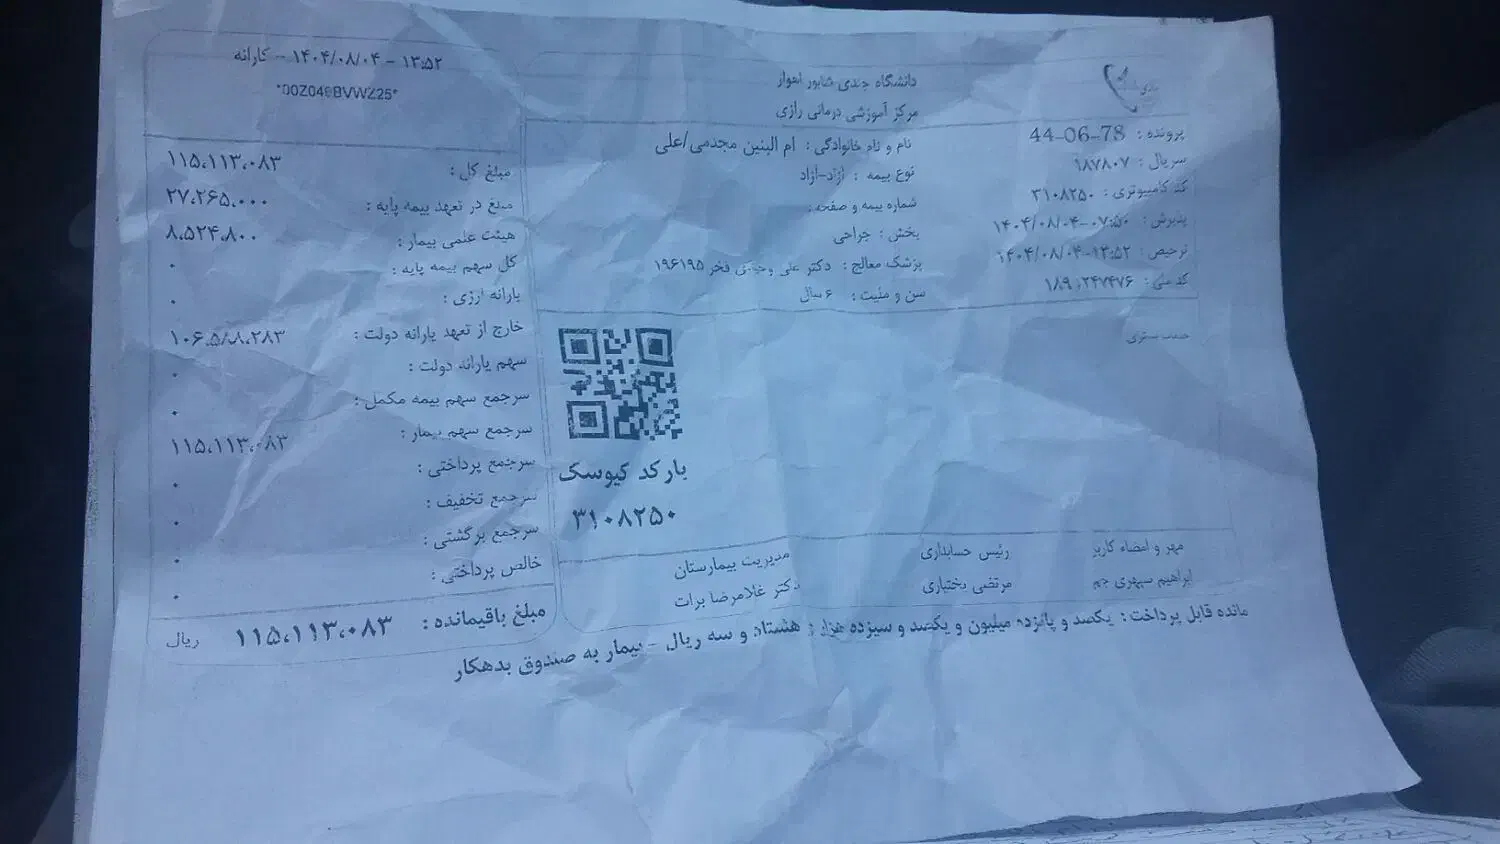 دانشگاه جندی شاپور اهواز
مرکز آموزشی درمانی رازی
پرونده : 44-06-78
سریال : ۱۸۷۸۰۷
کد کامپیوتری : ۳۱۰۸۲۵۰
پذیرش : ۰۷:۵۰-۱۴۰۴/۰۸/۰۴
ترخیص : ۱۳:۵۲-۱۴۰۴/۰۸/۰۴
کد ملی :
نام و نام خانوادگی : ام البنین مجدمی/علی
نوع بیمه : آزاد-آزاد
شماره بیمه و صفحه :
بخش : جراحی
پزشک معالج : دکتر علی فخر ۱۹۶۱۹۵
سن و ملیت : ۶ سال
۱۳:۵۲ - ۱۴۰۴/۰۸/۰۴ - کارانه
*00Z049BVWZ25*
مبلغ کل : ۱۱۵،۱۱۳،۰۸۳
مبلغ در تعهد بیمه پایه : ۲۷،۲۶۵،۰۰۰
هیئت علمی بیمار : ۸،۵۲۴،۸۰۰
کل سهم بیمه پایه : ۰
یارانه ارزی : ۰
خارج از تعهد یارانه دولت : ۱۰۶،۵۸۸،۲۸۳
سهم یارانه دولت : ۰
سرجمع سهم بیمه مکمل : ۰
سرجمع سهم بیمار : ۱۱۵،۱۱۳،۰۸۳
سرجمع پرداختی : ۰
سرجمع تخفیف : ۰
سرجمع برگشتی : ۰
خالص پرداختی : ۰
مبلغ باقیمانده : ۱۱۵،۱۱۳،۰۸۳ ریال
بارکد کیوسک
۳۱۰۸۲۵۰
مهر و امضاء کاربر
ابراهیم سپهری جم
رئیس حسابداری
مرتضی بختیاری
مدیریت بیمارستان
دکتر غلامرضا برات
مانده قابل پرداخت : یکصد و پانزده میلیون و یکصد و سیزده هزار و هشتاد و سه ریال - بیمار به صندوق بدهکار